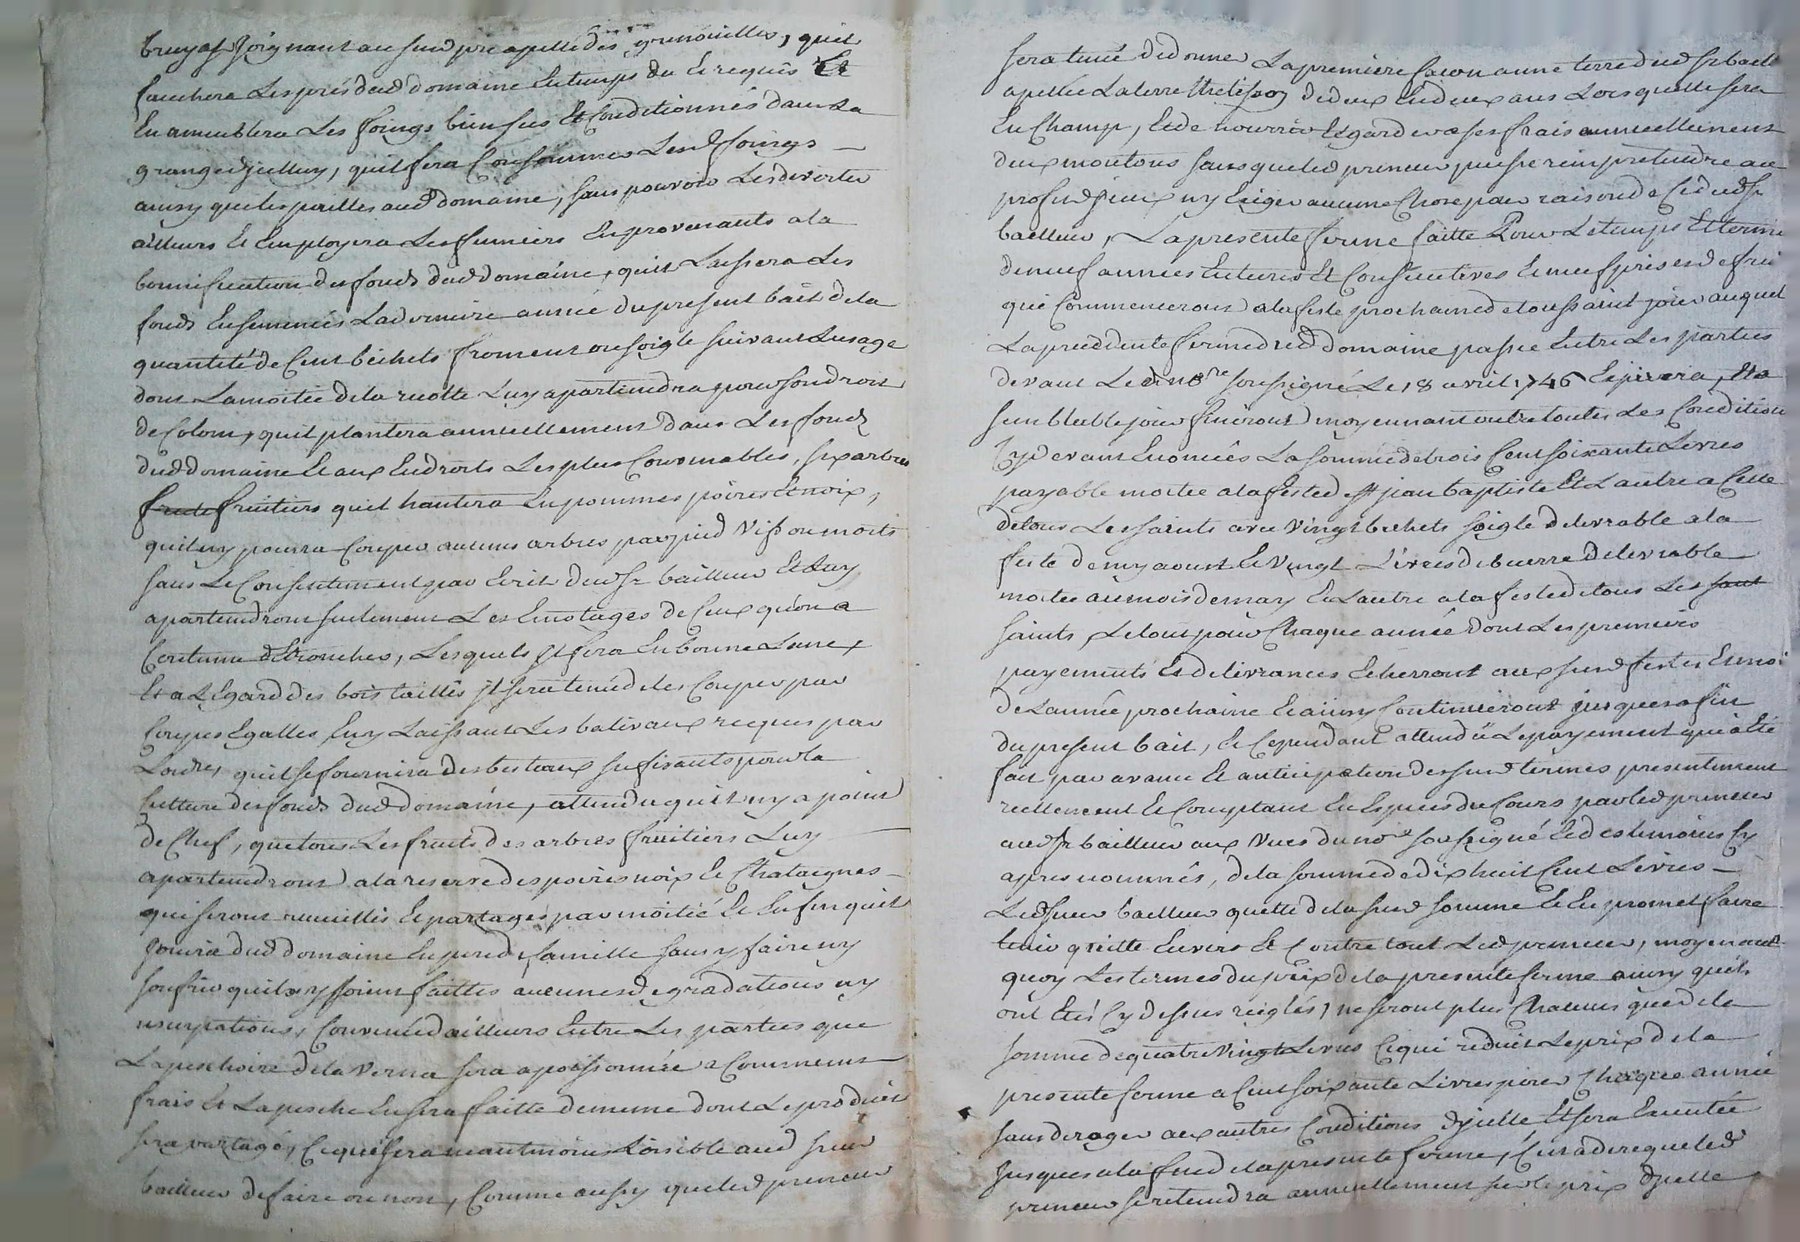 bruyas Joignant au susd pré apellé des grenouilles, quil
fauchera Les prés dud domaine En temps du Et requis Et
En ameublera Les foings bien secs Et Conditionnés dans La
grange d'jcelluy, quil fera Consommer Lesd foings
ainsy que les pailles aud domaine, sans pouvoir Les divertir
ailleurs Et Employera Les fumiers En provenants a la
bonnification des fonds dud domaine, quil Laissera Les
fonds Ensemencés La derniere année du present bail de la
quantité de Cent bichets froment ou soigle suivant Lusage
dont La moitié de la recolte Luy apartiendra pour son droit
de Colon, quil plantera annuellement dans Les fonds
dud domaine Et aux Endroits Les plus Convenables, six arbres
fruitiers quil hantera En pommes poires Et noix,
quil ny pourra Couper aucuns arbres par pied Vifs ou morts
sans Le Consentement par Ecrit dud sr bailleur Et Luy
apartiendront seulement Les Emotages de Ceux qu'on a
Coutume d'Ebroncher, Lesquels jl fera En bonne Lune,
Et a L'Egard des bois taillis jl sera tenu de les Couper par
Coupes Egalles En y Laissant Les baliveaux requis par
Lordre, quil se fournira des bestiaux sufisants pour la
Culture des fonds dud domaine, attendu quil ny a point
de Chef, que tous Les fruits des arbres fruitiers Luy
apartiendront a la reserve des poires noix Et Chataignes
qui seront recueillis Et partagés par moitié Et Enfin quil
Jouira dud domaine En pere de famille sans y faire ny
soufrir quil ny soient faittes aucunes degradations ny
usurpations, Convenu d'ailleurs Entre Les parties que
La peschoire de la Verna sera apoissonnée a Communs
frais Et La pesche En sera faitte de meme dont Le produit
sera partagé, Ce qui sera neantmoins Loisible aud sieur
bailleur de faire ou non, Comme aussy que led preneur
sera tenu de donner La premiere façon a une terre dud sr bailleur
apellée La terre de deux En deux ans Lors quelle sera
En Champ, Et de nourrir Et garder a ses frais annuellement
deux moutons sans que led preneur puisse rien pretendre au
profit d'jceux ny Exiger aucune Chose par raison de Ce dud sr
bailleur, La presente ferme faitte Pour Le temps Et terme
de neuf années Entieres Et Consecutives Et neuf prises de fruits
qui Commenceront a la feste prochaine de toussaint jour auquel
La precedente ferme dud domaine passée Entre Les parties
devant Led nore soussigné Le 18 avril 1746 Expirera, Et a
semblable jour finiront moyennant outre toutes Les Conditions
Cy devant Enoncées La somme de trois Cent soixante Livres
payable moitié a la feste de st jean baptiste Et L'autre a Celle
de tous Les saints avec vingt bichets soigle delivrable a la
feste de my aoust Et Vingt Livres de beurre delivrable
moitié au mois de may Et L'autre a la feste de tous Les saint
saints, Le tout pour Chaque année dont Les premiers
payements Et delivrances Echerront aux susd festes Et mois
de L'année prochaine Et ainsy Continueront jusques a fin
du present bail, Et Cependant attendu Le payement qui a Eté
fait par avance Et anticipation des susd termes presentement
reellement Et Comptant En Especes du Cours par led preneur
aud sr bailleur aux Vues du nore soussigné Et des temoins Cy
apres nommés, de la somme de dix huit Cent Livres
Led sieur bailleur quitte de la susd somme Et En promet faire
tenir quitte Envers Et Contre tous Led preneur, moyennant
quoy Les termes du prix de la presente ferme ainsy quils
ont Eté Cy dessus reiglés, ne seront plus Chacuns que de la
somme de quatre Vingt Livres Ce qui reduit Le prix de la
presente ferme a Cent soixante Livres pour Chaque année
sans deroger aux autres Conditions d'jcelle Et sera Executée
Jusques a la fin de la presente ferme, C'est a dire que led
preneur se retiendra annuellement sur le prix d'jcelle